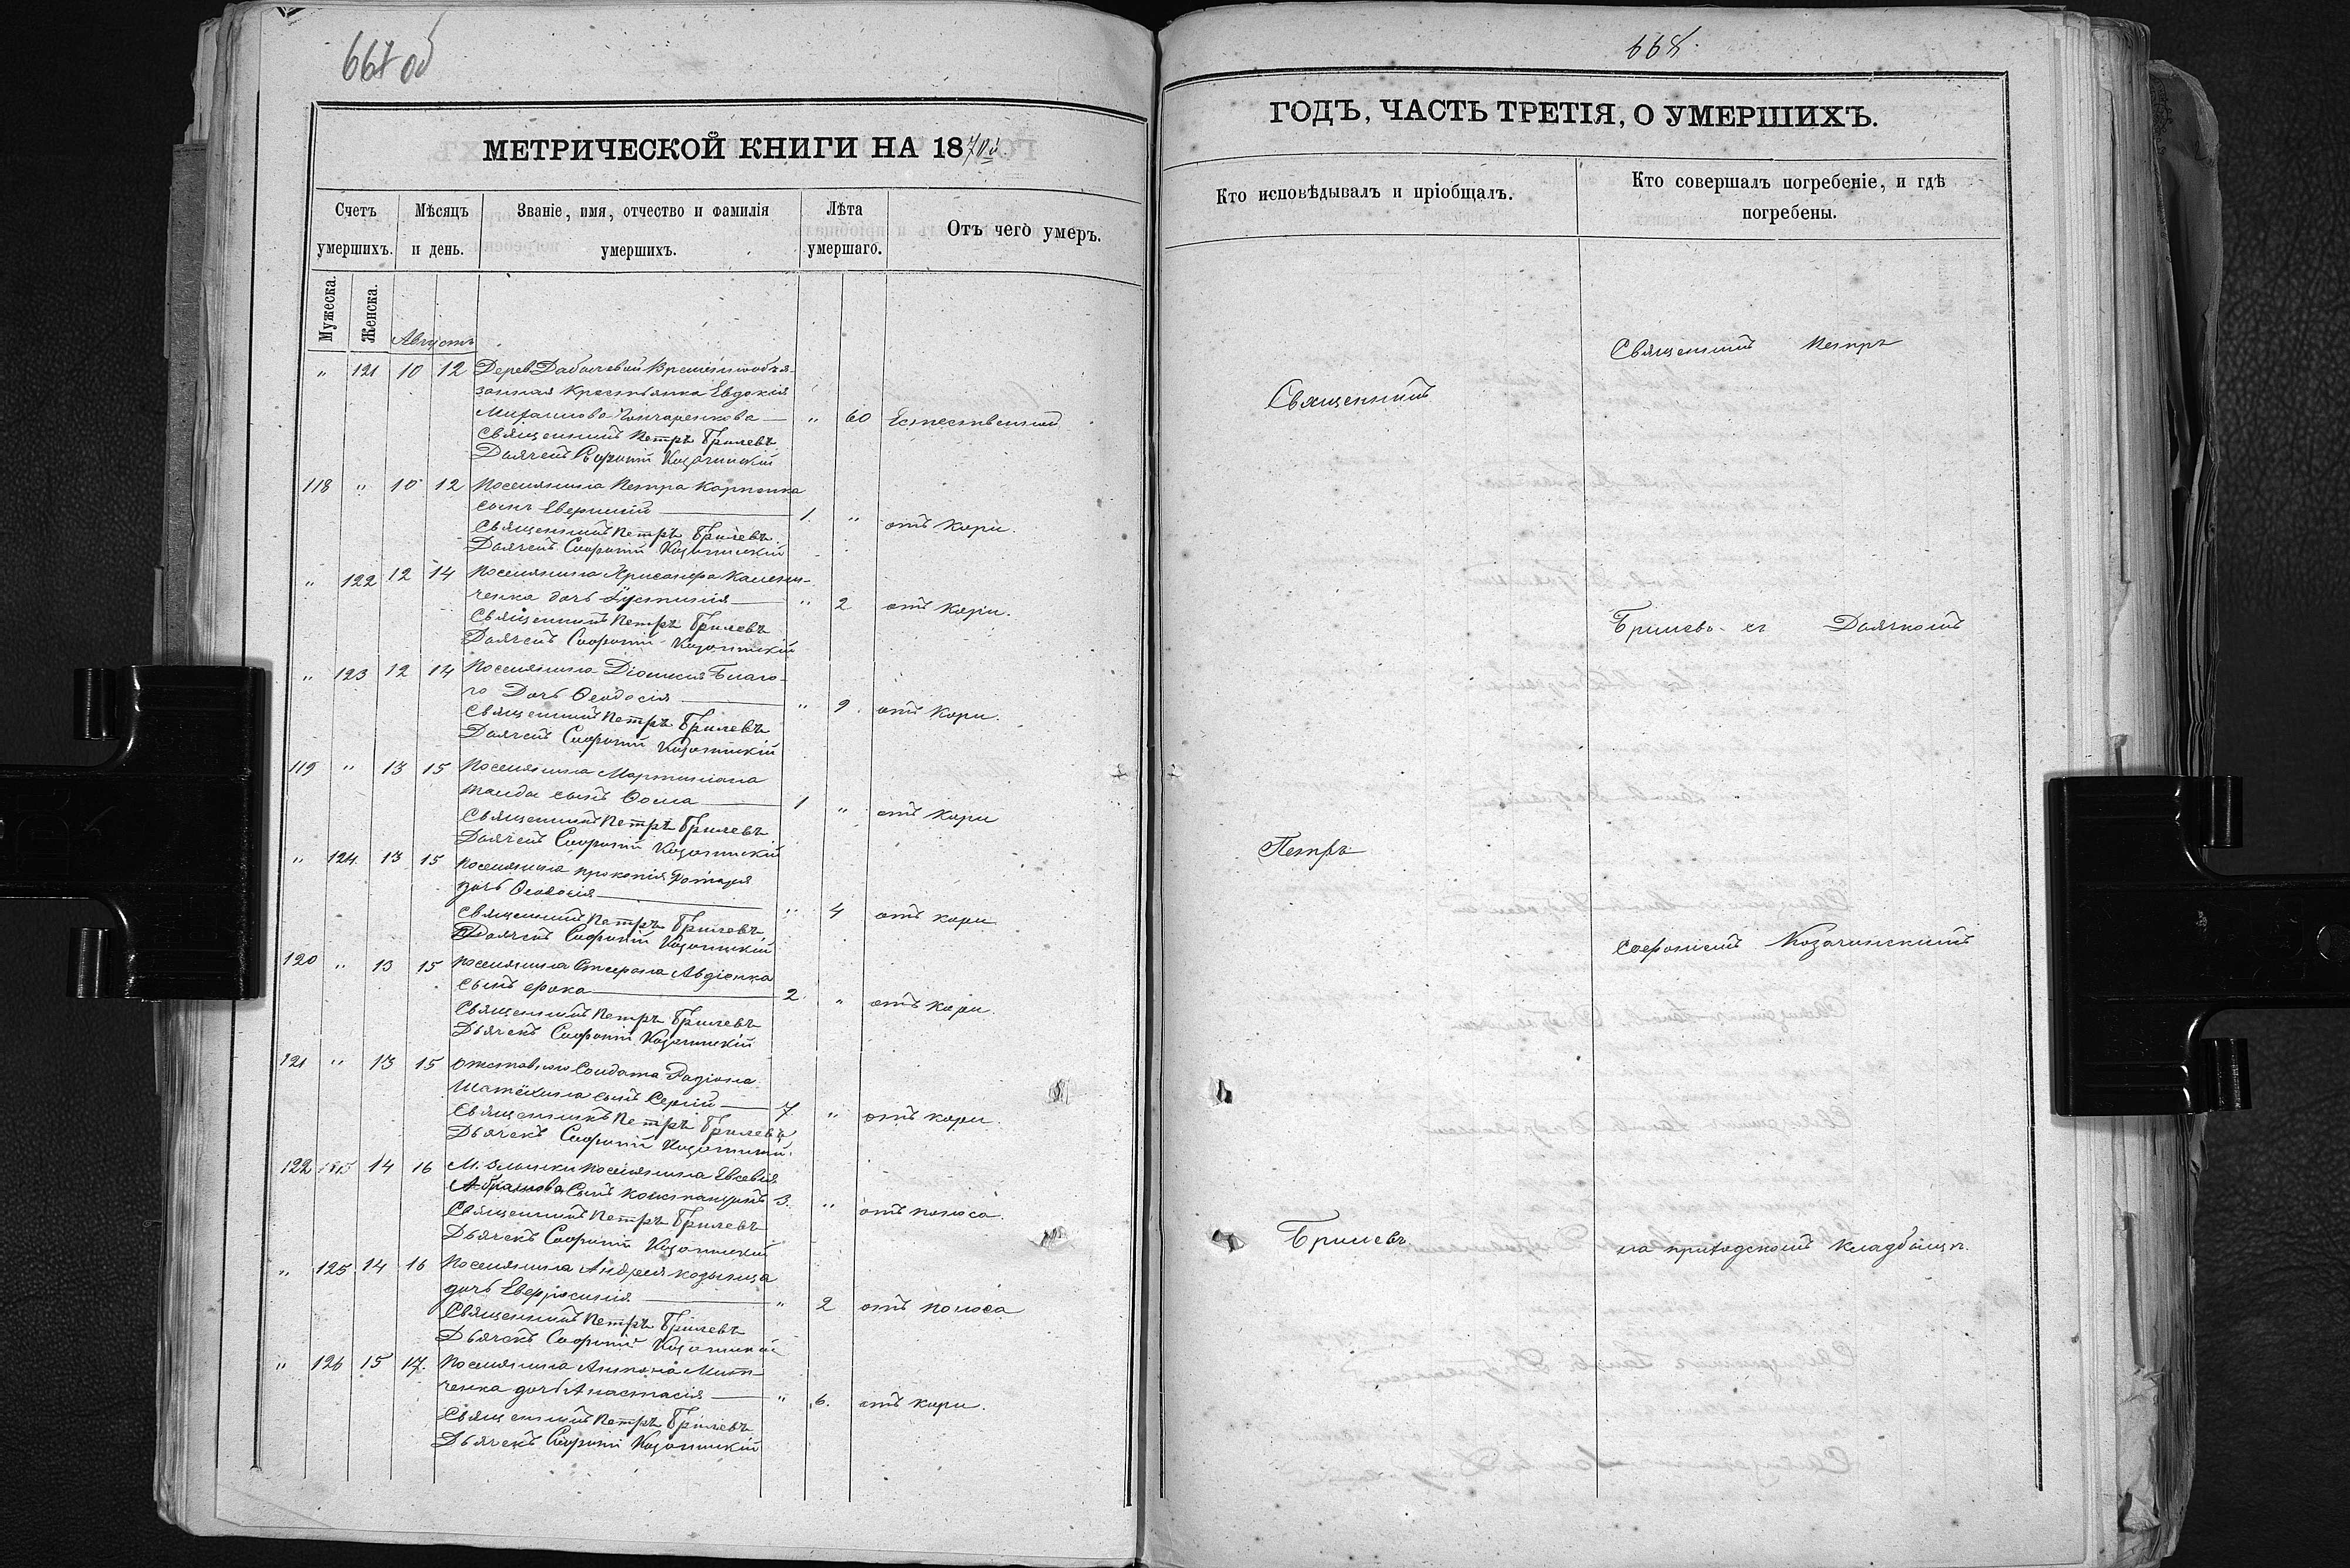 667 об
МЕТРИЧЕСКОЙ КНИГИ НА 1870й
Счетъ умершихъ.
Мѣсяцъ и день.
Званіе, имя, отчество и фамилія умершихъ.
Лѣта умершаго.
Отъ чего умеръ.
Мужеска.
Женска.
Августъ
" 121 10 12 Дерев Временнообя-
занная крестьянка Евдокія
Михайлова Гончаренкова — " 60 Естественной
Священникъ Петръ Брилевъ
Дьячекъ Софроній Козачинскій
118 " 10 12 Поселянина Петра Карпенка
сынъ — 1. " отъ кори.
Священникъ Петръ Брилевъ
Дьячекъ Софроній Козачинскій
" 122 12 14 Поселянина Хрисанфа
ченка дочь Іустинія — " 2 отъ кори.
Священникъ Петръ Брилевъ
Дьячекъ Софроній Козачинскій
" 123 12 14 Поселянина Діонисія Благо-
го Дочь Ѳеодосія — " 9. отъ кори.
Священникъ Петръ Брилевъ
Дьячекъ Софроній Козачинскій
119 " 13 15 Поселянина Мартиніана
сынъ Ѳома — 1 " отъ кори
Священникъ Петръ Брилевъ
Дьячекъ Софроній Козачинскій
" 124. 13 15 Поселянина Прокопія Ротаря
дочь Ѳеодосія — " 4 отъ кори
Священникъ Петръ Брилевъ
Дьячекъ Софроній Козачинскій
120 " 13 15 Поселянина Стефана Авдіенка
сынъ — 2. " отъ кори.
Священникъ Петръ Брилевъ
Дьячекъ Софроній Козачинскій
121 " 13 15 Отставного Солдата Радіона
сынъ Сергій — 7 " отъ кори.
Священникъ Петръ Брилевъ
Дьячекъ Софроній Козачинскій.
122 14 16 М. Злынки поселянина Евсевія
Абрамова Сынъ 3. " отъ поноса.
Священникъ Петръ Брилевъ
Дьячекъ Софроній Козачинскій
" 125. 14 16 Поселянина Андрея
дочь Евфросинія — " 2 отъ поноса
Священникъ Петръ Брилевъ
Дьячекъ Софроній Козачинскій
" 126 15 17. Поселянина Антонія
ченка дочь Анастасія — " 6. отъ кори.
Священникъ Петръ Брилевъ
Дьячекъ Софроній Козачинскій
668.
ГОДЪ, ЧАСТЬ ТРЕТІЯ, О УМЕРШИХЪ.
Кто исповѣдывалъ и пріобщалъ.
Кто совершалъ погребеніе, и гдѣ
погребены.
Священникъ Петръ
Священникъ
Брилевъ съ Дьячкомъ
Петръ
Софроніемъ Козачинскимъ
Брилевъ
на приходскомъ кладбищѣ.